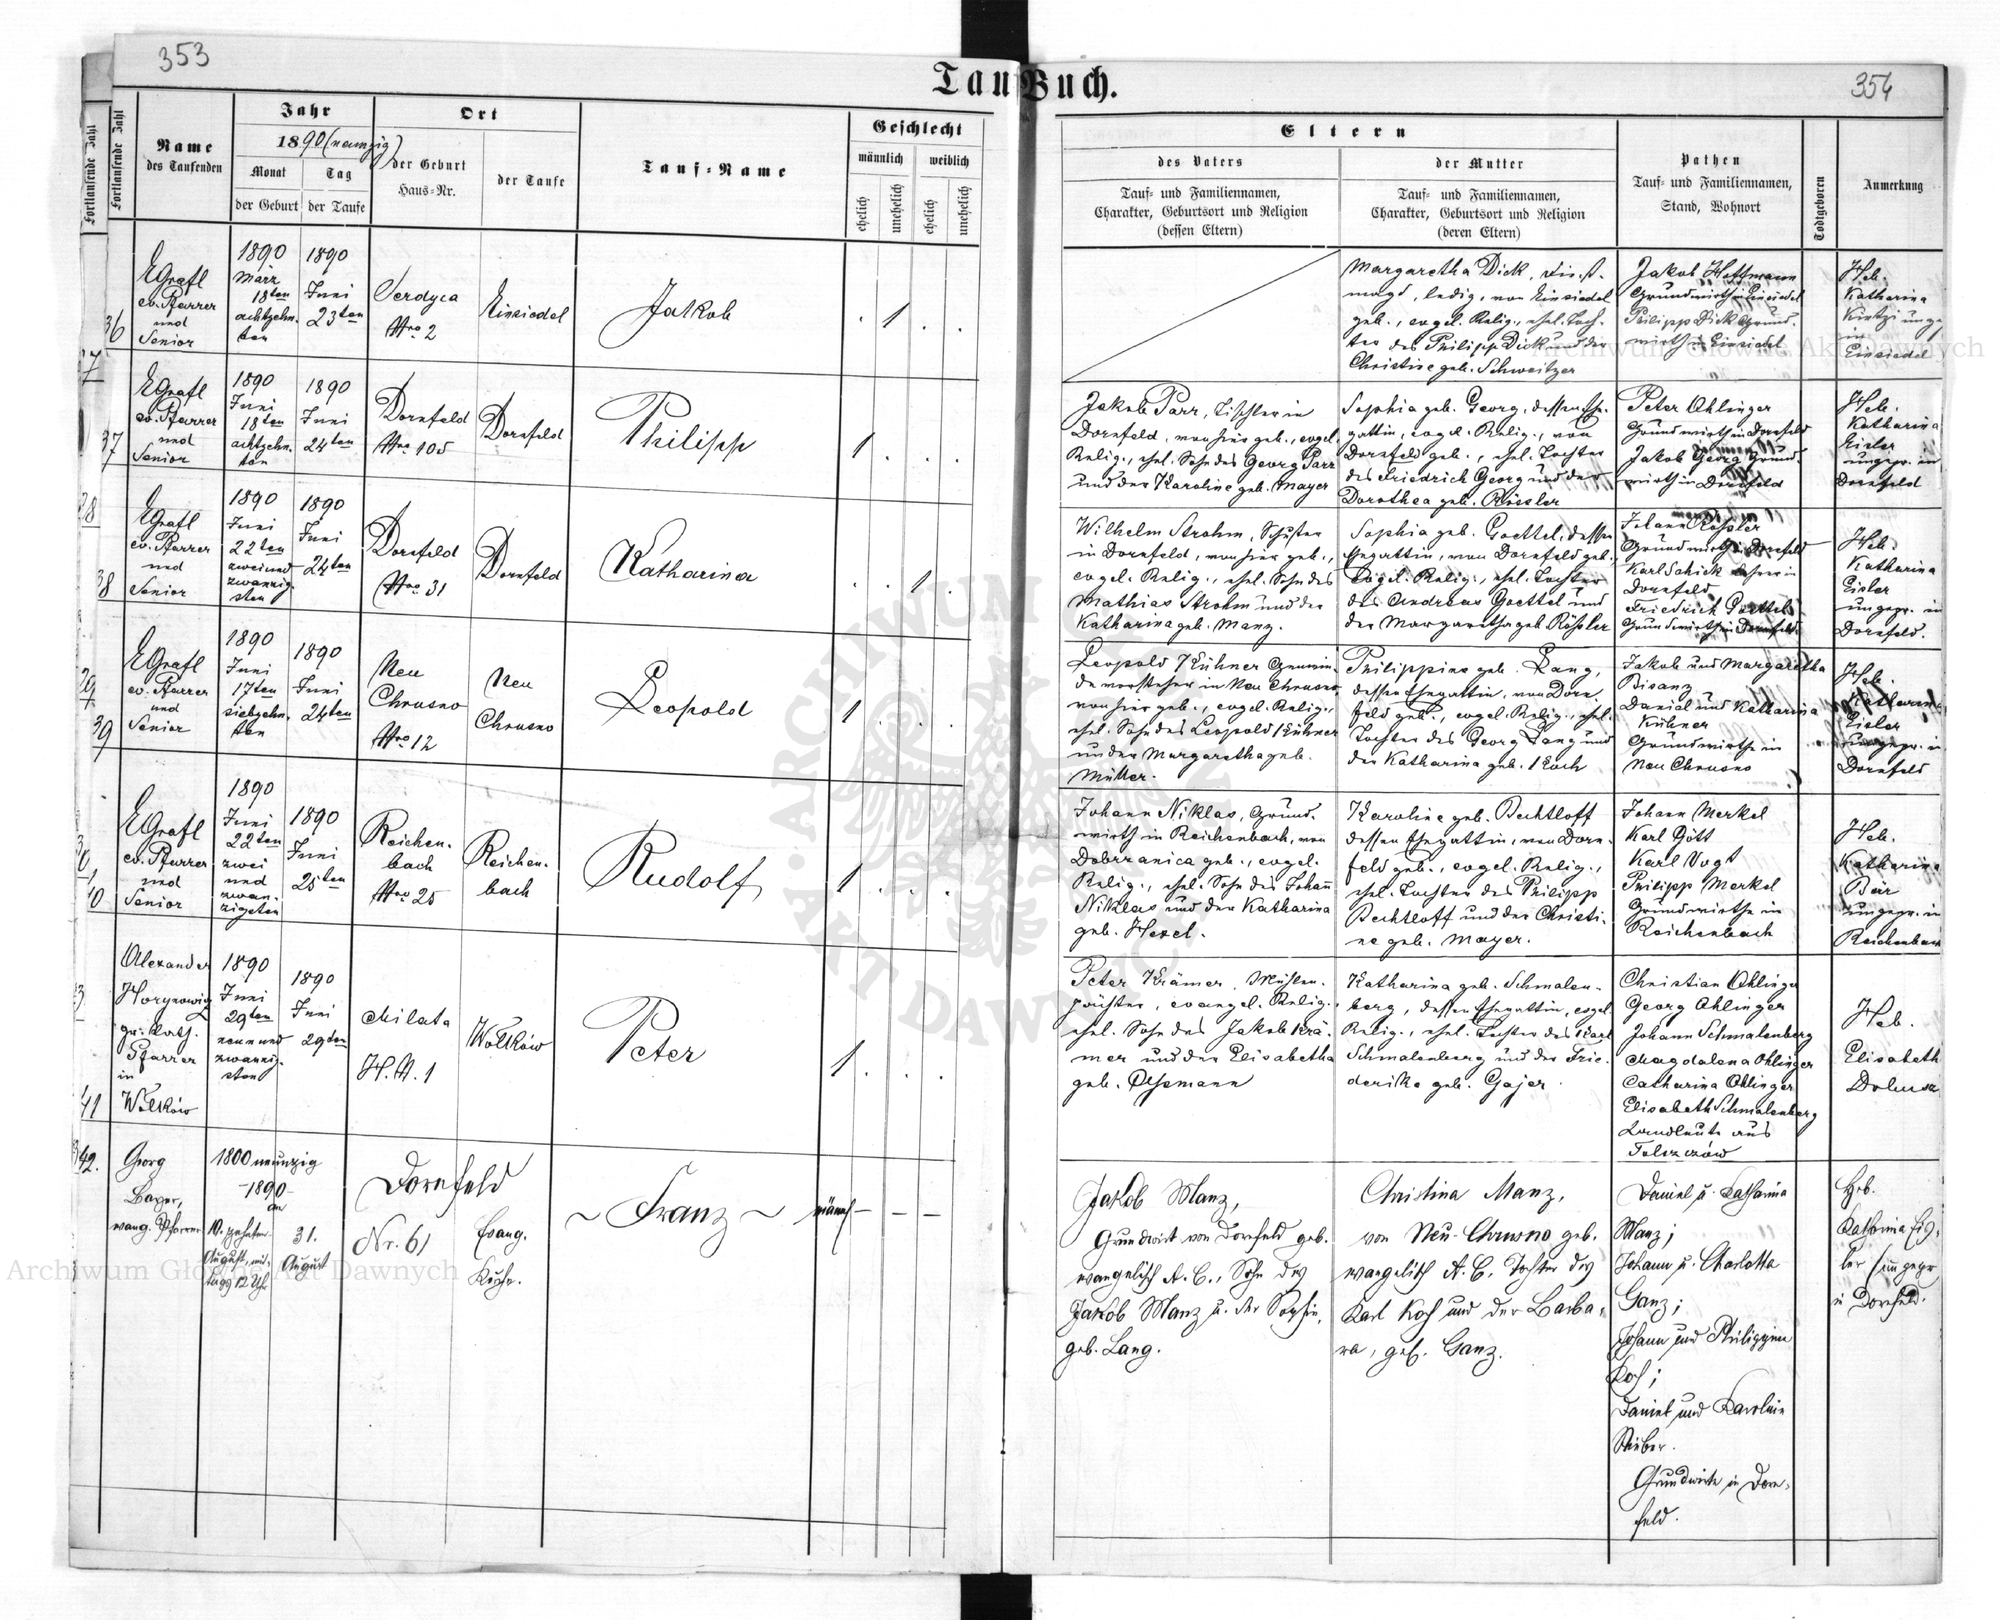 353
Tauf Buch.
354
Fortlaufende Zahl
Fortlaufende Zahl
Name
des Taufenden
Jahr
1890 (neunzig)
Monat
Tag
der Geburt
der Taufe
Ort
der Geburt
Haus-Nr.
der Taufe
Tauf-Name
Geschlecht
männlich
weiblich
ehelich
unehelich
ehelich
unehelich
Eltern
des Vaters
Tauf- und Familiennamen,
Charakter, Geburtsort und Religion
(dessen Eltern)
der Mutter
Tauf- und Familiennamen,
Charakter, Geburtsort und Religion
(deren Eltern)
Pathen
Tauf- und Familiennamen,
Stand, Wohnort
Todtgeboren
Anmerkung
36
EGrafl
ev. Pfarrer
und
Senior
1890
März
18ten
achtzehn-
ten
1890
Juni
23ten
Serdyca
Nro 2
Einsiedel
Jakob
1
Margaretha Dick, Dienst-
magd, ledig, von Einsiedel
geb., evgel. Relig., ehel. Toch-
ter des Philipp Dick und der
Christine geb. Schweitzer
Jakob Hoffmann
Grundwirth in Einsiedel
Philipp Dick Grund-
wirth in Einsiedel
Heb.
Katharina
in
Einsiedel
37
EGrafl
ev. Pfarrer
und
Senior
1890
Juni
18ten
achtzehn-
ten
1890
Juni
24ten
Dornfeld
Nro 105
Dornfeld
Philipp
1
Jakob Parr, Tischler in
Dornfeld, von hier geb., evgel.
Relig., ehel. Sohn des Georg Parr
und der Karoline geb. Mayer
Sophia geb. Georg, dessen Ehe-
gattin, evgel. Relig., von
Dornfeld geb., ehel. Tochter
des Friedrich Georg und der
Dorothea geb. Rössler
Peter Ohlinger
Grundwirth in Dornfeld
Jakob Georg Grund-
wirth in Dornfeld
Heb.
Katharina
Eisler
ungepr. in
Dornfeld
38
EGrafl
ev. Pfarrer
und
Senior
1890
Juni
22ten
zweiund
zwanzig-
sten
1890
Juni
24ten
Dornfeld
Nro 31
Dornfeld
Katharina
1
Wilhelm Strohm, Schuster
in Dornfeld, von hier geb.,
evgel. Relig., ehel. Sohn des
Mathias Strohm und der
Katharina geb. Manz.
Sophia geb. Goettel, dessen
Ehegattin, von Dornfeld geb.,
evgel. Relig., ehel. Tochter
des Andreas Goettel und
der Margaretha geb. Rößler
Johann Rößler
Grundwirth in Dornfeld
Karl Schick Lehrer in
Dornfeld
Friedrich Goettel
Grundwirth in Dornfeld.
Heb.
Katharina
Eisler
ungepr. in
Dornfeld.
39
EGrafl
ev. Pfarrer
und
Senior
1890
Juni
17ten
siebzehn-
ten
1890
Juni
24ten
Neu
Chrusno
Nro 12
Neu
Chrusno
Leopold
1
Leopold Kühner Gemein-
devorsteher in Neu Chrusno,
von hier geb., evgel. Relig.,
ehel. Sohn des Leopold Kühner
und der Margaretha geb.
Müller.
Philippine geb. Lang,
dessen Ehegattin, von Dorn-
feld geb., evgel. Relig., ehel.
Tochter des Georg Lang und
der Katharina geb. Koch
Jakob und Margaretha
Bisanz
Daniel und Katharina
Kühner
Grundwirthe in
Neu Chrusno
Heb.
Katharina
Eisler
ungepr. in
Dornfeld
40
EGrafl
ev. Pfarrer
und
Senior
1890
Juni
22ten
zwei
und
zwan-
zigsten
1890
Juni
25ten
Reichen-
bach
Nro 25
Reichen-
bach
Rudolf
1
Johann Niklas, Grund-
wirth in Reichenbach, von
Dobrzanica geb., evgel.
Relig., ehel. Sohn des Johann
Niklas und der Katharina
geb. Hexel.
Karoline geb. Bechtloff
dessen Ehegattin, von Dorn-
feld geb., evgel. Relig.,
ehel. Tochter des Philipp
Bechtloff und der Christi-
ne geb. Mayer.
Johann Merkel
Karl Gött
Karl Vogt
Philipp Merkel
Grundwirthe in
Reichenbach
Heb.
Katharina
Bär
ungepr. in
Reichenbach
41
Alexander
gr. kath.
Pfarrer
in
Wołków
1890
Juni
29ten
neunund
zwanzig-
sten
1890
Juni
29ten
Milata
H. N. 1
Wołków
Peter
1
Peter Krämer, Mühlen-
pächter, evangel. Relig.,
ehel. Sohn des Jakob Krä-
mer und der Elisabetha
geb.
Katharina geb. Schmalen-
berg, dessen Ehegattin, evgel.
Relig., ehel. Tochter des Karl
Schmalenberg und der Frie-
derike geb. Gajer.
Christian Ohlinger
Georg Ohlinger
Johann Schmalenberg
Magdalena Ohlinger
Catharina Ohlinger
Elisabeth Schmalenberg
Landleute aus
Heb.
Elisabeth
42.
Georg
Bayer,
evang. Pfarrer
1800 neunzig
-1890-
am
10. zehnten
August, mit-
tags 12 Uhr
31.
August
Dornfeld
Nr. 61
Evang.
Kirche.
~ Franz ~
männl
Jakob Manz,
Grundwirt von Dornfeld geb.
evangelisch A. C., Sohn des
Jakob Manz u. der Sophie,
geb. Lang.
Christina Manz,
von Neu-Chrusno geb.
evangelisch A. C. Tochter des
Karl Koch und der Barba-
ra, geb. Ganz.
Daniel u. Katharina
Manz;
Johann u. Charlotta
Ganz;
Johann und Philippine
Koch;
Daniel und Karoline
Stüber.
Grundwirte in Dorn-
feld.
Heb.
Katharina Eis-
ler ungepr
in Dornfeld.
Archiwum Główne Akt Dawnych
Archiwum Główne Akt Dawnych
ARCHIWUM
AKT DAWNYCH